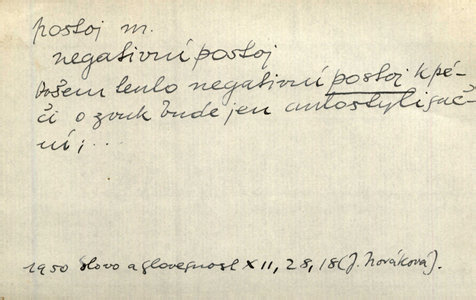 postoj m.
negativní postoj
Ovšem tento negativní postoj k pé-
či o zvuk bude jen autostylisač-
ní; ...
1950 Slovo a slovesnost XII, 28, 18 (J. Nováková).